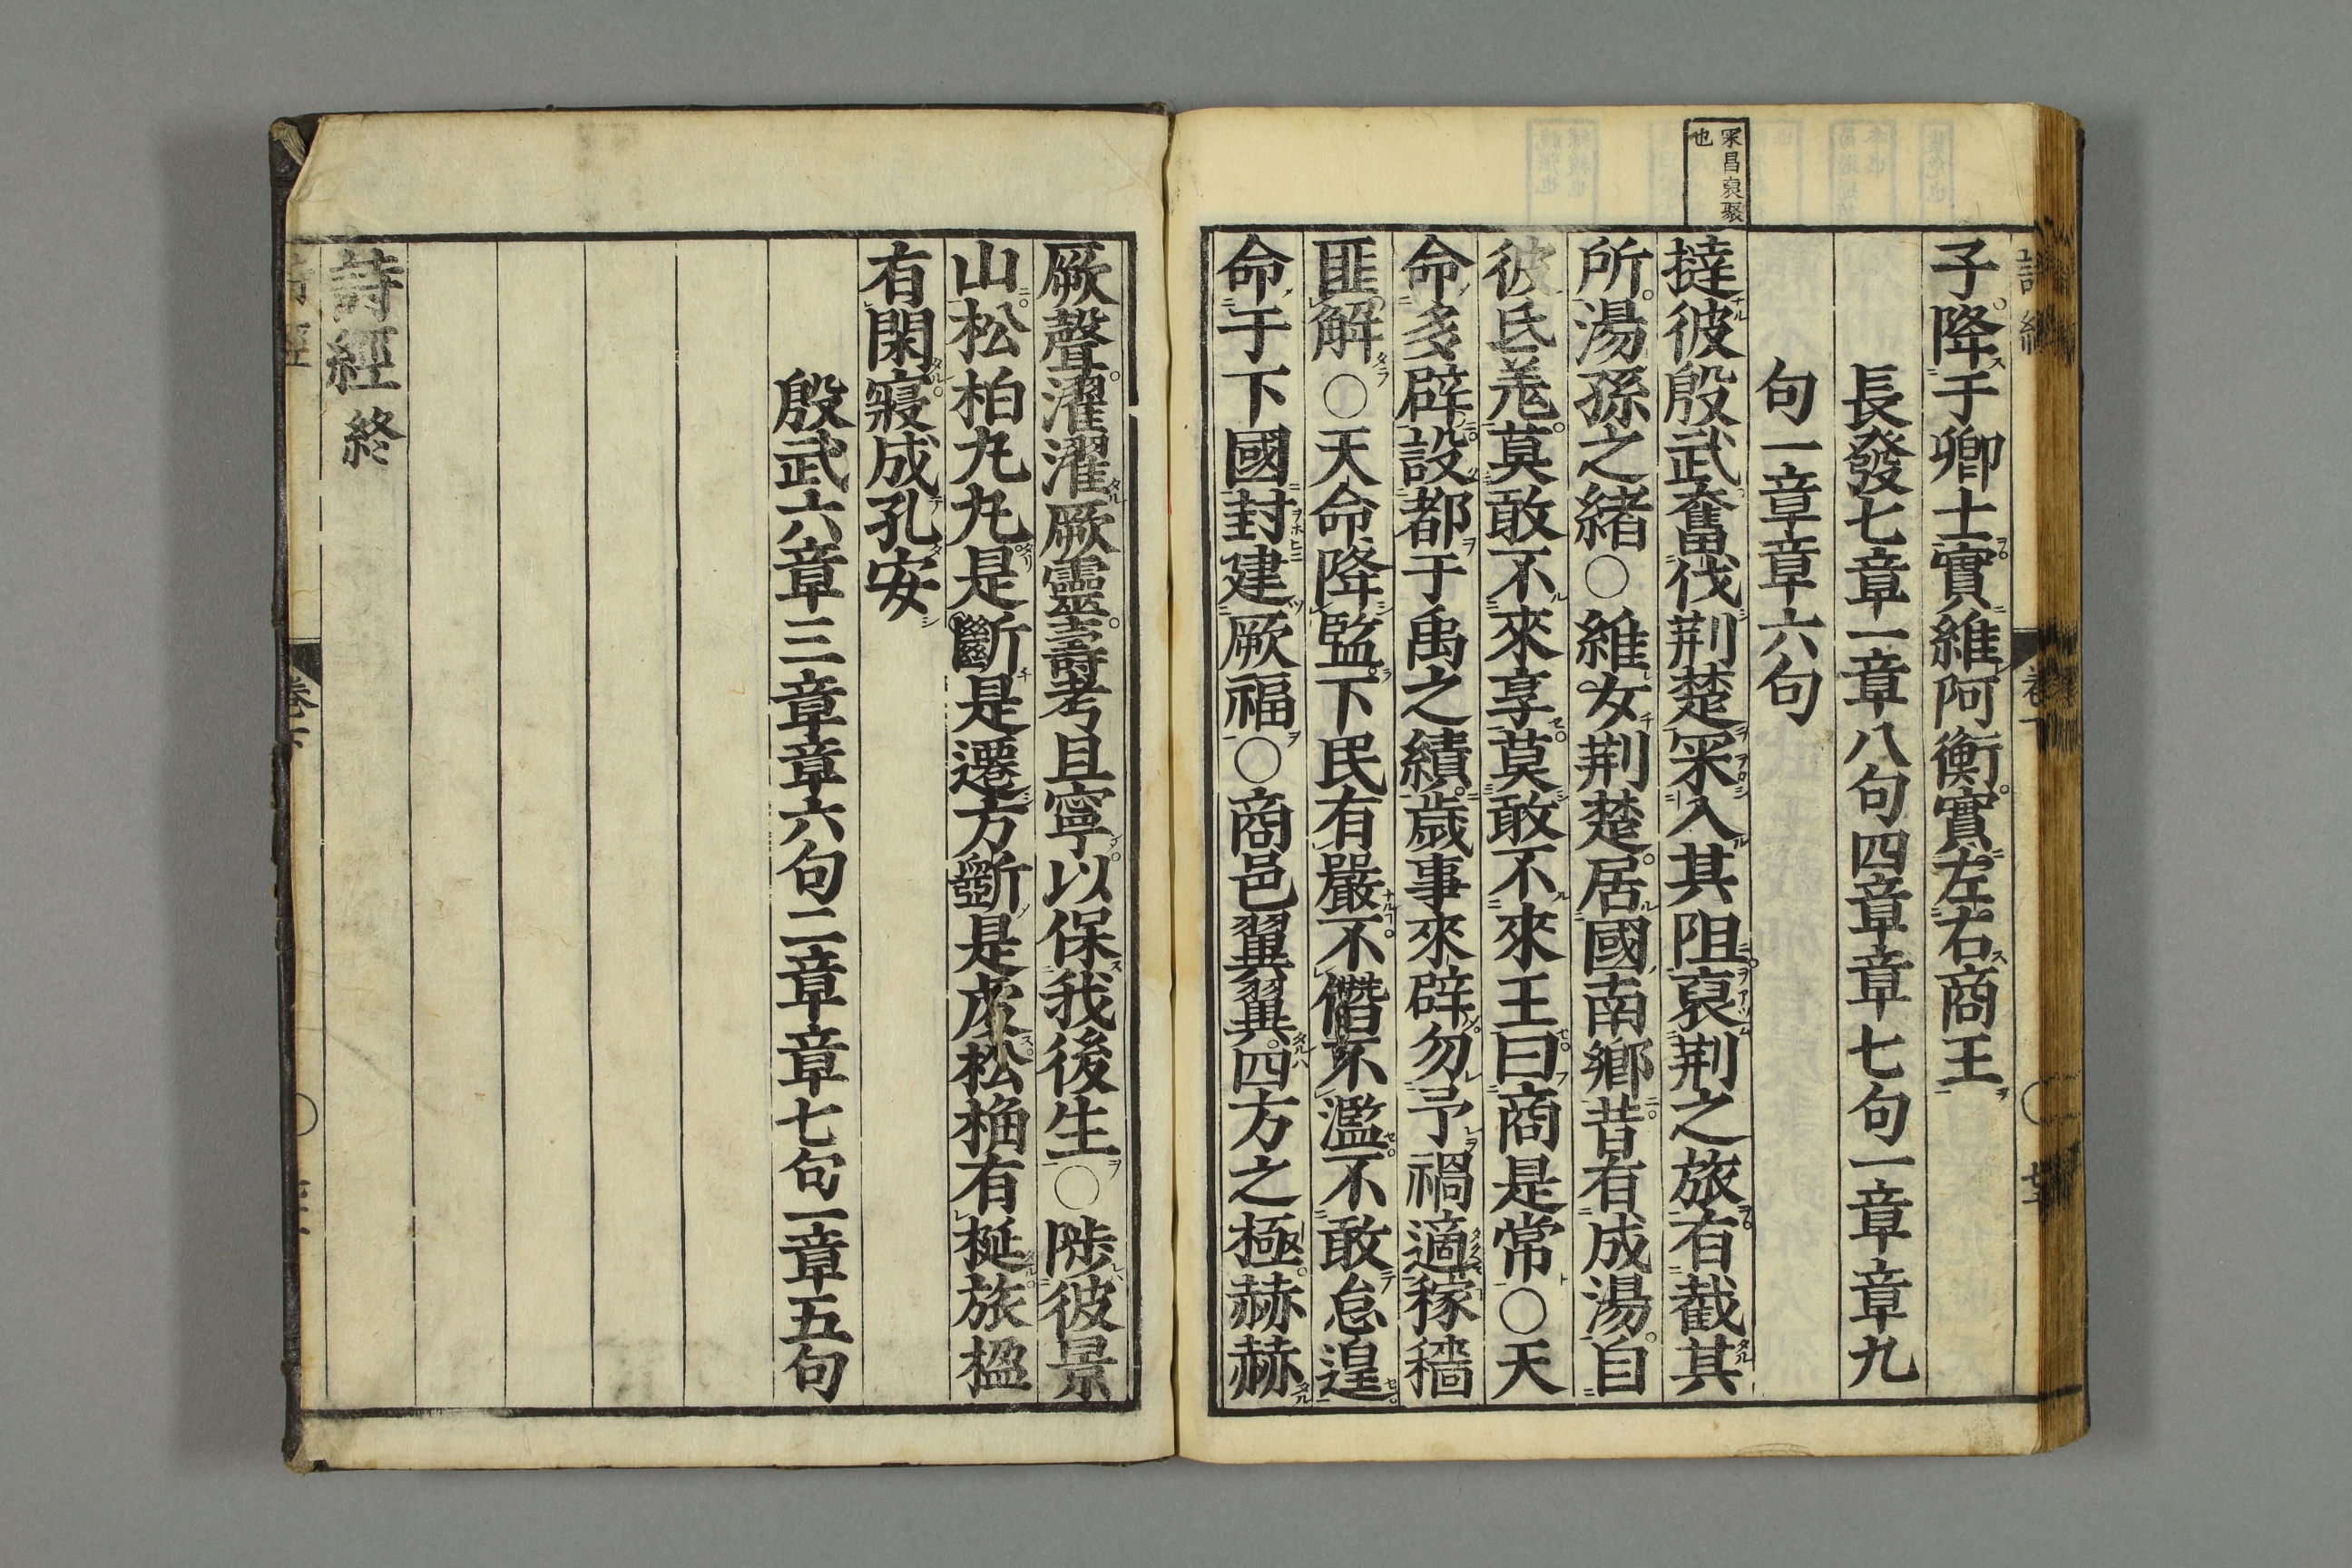 子降于卿士實維阿衡實左右商王
長發七章一章八句四章章七句一章章九
句一章章六句
罙冒裒聚
也
撻彼殷武奮伐荆楚罙入其阻裒荆之旅有截其
所湯孫之緒○維女荆楚居國南鄉昔有成湯自
彼氐羗莫敢不來享莫敢不來王曰商是常○天
命多辟設都于禹之績歲事來辟勿予禍適稼穡
匪解○天命降監下民有嚴不僭不濫不敢怠遑
命于下國封建厥福○商邑翼翼四方之極赫赫
厥聲濯濯厥靈壽考且寧以保我後生○陟彼景
山松柏丸丸是斷是遷方斲是虔松桷有梴旅楹
有閑寢成孔安
殷武六章三章章六句二章章七句一章五句
詩經終